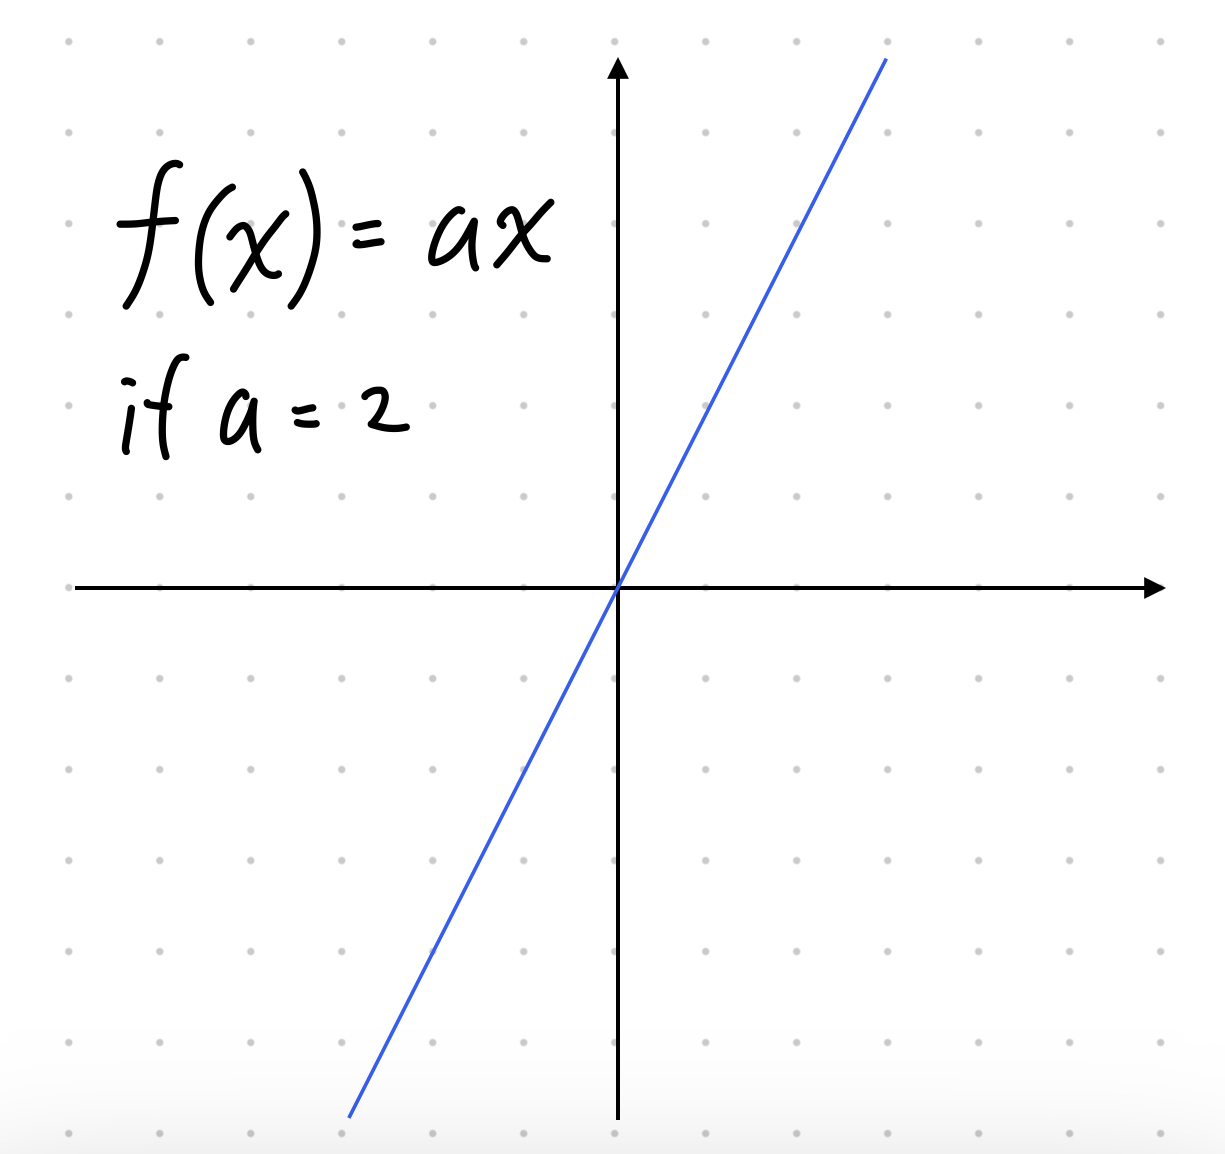 f(x) = ax
if a = 2